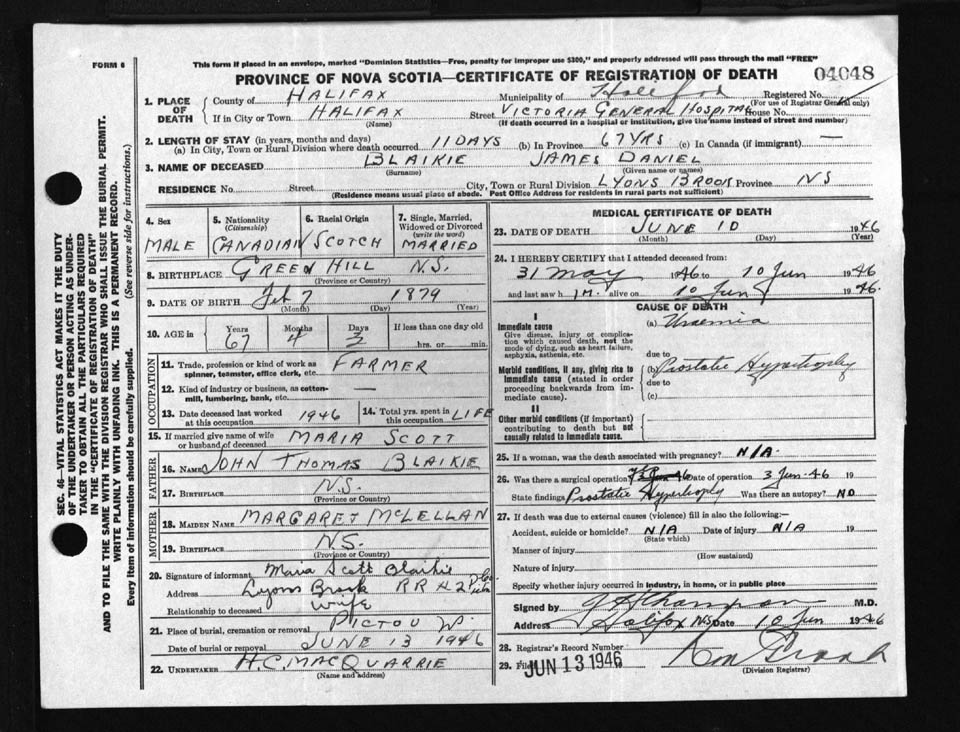 FORM 6
This form if placed in an envelope, marked "Dominion Statistics—Free, penalty for improper use $300," and properly addressed will pass through the mail "FREE"
PROVINCE OF NOVA SCOTIA—CERTIFICATE OF REGISTRATION OF DEATH
04048
1. PLACE OF DEATH
County of HALIFAX Municipality of Halifax Registered No.
(For use of Registrar General only)
If in City or Town HALIFAX Street VICTORIA GENERAL HOSPITAL House No.
(Name) (If death occurred in a hospital or institution, give the name instead of street and number)
2. LENGTH OF STAY (in years, months and days)
(a) In City, Town or Rural Division where death occurred 11 DAYS (b) In Province 67 YRS. (c) In Canada (if immigrant) —
3. NAME OF DECEASED BLAIKIE JAMES DANIEL
(Surname) (Given name or names)
RESIDENCE No. Street City, Town or Rural Division LYONS BROOK Province NS
(Residence means usual place of abode. Post Office Address for residents in rural parts not sufficient)
SEC. 46—VITAL STATISTICS ACT MAKES IT THE DUTY
OF THE UNDERTAKER OR PERSON ACTING AS UNDER-
TAKER TO OBTAIN ALL THE PARTICULARS REQUIRED
IN THE "CERTIFICATE OF REGISTRATION OF DEATH"
AND TO FILE THE SAME WITH THE DIVISION REGISTRAR WHO SHALL ISSUE THE BURIAL PERMIT.
WRITE PLAINLY WITH UNFADING INK. THIS IS A PERMANENT RECORD.
Every item of information should be carefully supplied. (See reverse side for instructions.)
4. Sex MALE
5. Nationality (Citizenship) CANADIAN
6. Racial Origin SCOTCH
7. Single, Married, Widowed or Divorced (write the word) MARRIED
8. BIRTHPLACE GREEN HILL N.S.
(Province or Country)
9. DATE OF BIRTH Feb 7 1879
(Month) (Day) (Year)
10. AGE in Years 67 Months 4 Days 3 If less than one day old hrs. or min.
OCCUPATION
11. Trade, profession or kind of work as spinner, teamster, office clerk, etc. FARMER
12. Kind of industry or business, as cotton-mill, lumbering, bank, etc. —
13. Date deceased last worked at this occupation 1946
14. Total yrs. spent in this occupation LIFE
15. If married give name of wife or husband of deceased MARIA SCOTT
FATHER
16. Name JOHN THOMAS BLAIKIE
17. Birthplace N.S.
MOTHER
18. MAIDEN NAME MARGARET MCLELLAN
19. BIRTHPLACE N.S.
(Province or Country)
20. Signature of informant Maria Scott Blaikie
Address Lyons Brook RR #2
Relationship to deceased Wife
21. Place of burial, cremation or removal PICTOU
Date of burial or removal JUNE 13 1946
22. UNDERTAKER H.C. MACQUARRIE
(Name and address)
MEDICAL CERTIFICATE OF DEATH
23. DATE OF DEATH JUNE 10 1946
(Month) (Day) (Year)
24. I HEREBY CERTIFY that I attended deceased from:
31 May 1946 to 10 Jun 1946
and last saw h im alive on 10 Jun 1946.
CAUSE OF DEATH
I
Immediate cause (a) Uraemia
Give disease, injury or complication which caused death, not the mode of dying, such as heart failure, asphyxia, asthenia, etc.
due to
Morbid conditions, if any, giving rise to immediate cause (stated in order proceeding backwards from immediate cause).
(b) Prostatic Hypertrophy
due to
(c)
II
Other morbid conditions (if important) contributing to death but not causally related to immediate cause.
25. If a woman, was the death associated with pregnancy? N/A.
26. Was there a surgical operation? Date of operation 3 Jun. 46 19
State findings Prostatic Hypertrophy Was there an autopsy? NO
27. If death was due to external causes (violence) fill in also the following:—
Accident, suicide or homicide? N/A Date of injury N/A 19
(State which)
Manner of injury
(How sustained)
Nature of injury
Specify whether injury occurred in industry, in home, or in public place
Signed by M.D.
Address Halifax NS Date 10 Jun 1946
28. Registrar's Record Number
29. Filed JUN 13 1946
(Division Registrar)